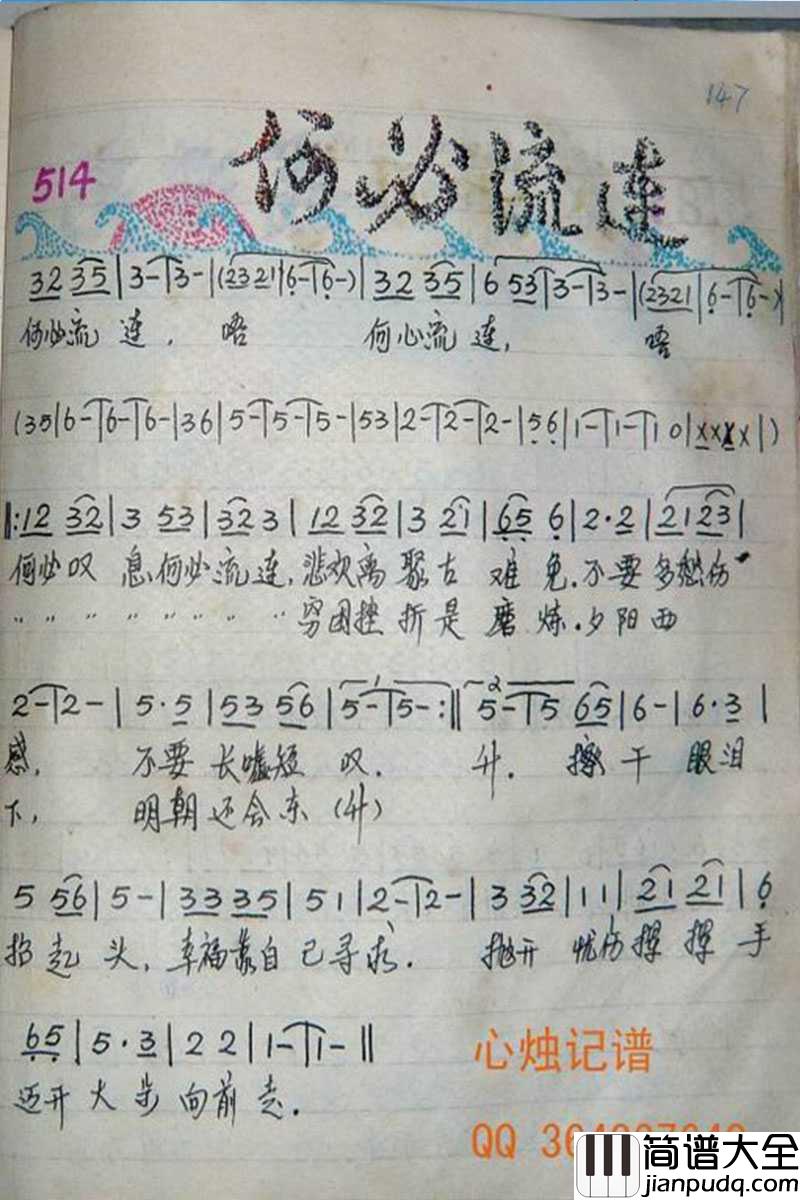 147
514
何必流连
32 35|3-|3-|(2321|6-|6-)|32 35|6 53|3-|3-|(2321|6-|6-)|
何必流 连， 唔 何心流 连， 唔
(35|6-|6-|6-|36|5-|5-|5-|53|2-|2-|2-|56|1-|1-|1 0|xxxx|)
‖:12 32|3 53|32 3|12 32|3 21|65 6|2·2|2123|
何必叹 息,何必流连,悲欢离 聚古 难免.不要多愁伤
〃 〃 〃 〃 〃 〃 〃 〃 穷困挫折是磨炼.夕阳西
2-|2-|5·5|53 56|5-|5-:‖5-|5 65|6-|6·3|
感, 不要长嘘短叹. 升. 擦干眼泪
下, 明朝还会东(升)
5 56|5-|33 35|51|2-|2-|3 32|11|21 21|6
抬起头,幸福靠自己寻求. 抛开忧伤挥挥手
65|5·3|22|1-|1-‖
迈开大步向前走.
心烛记谱
QQ
简谱大全
jianpudq.com